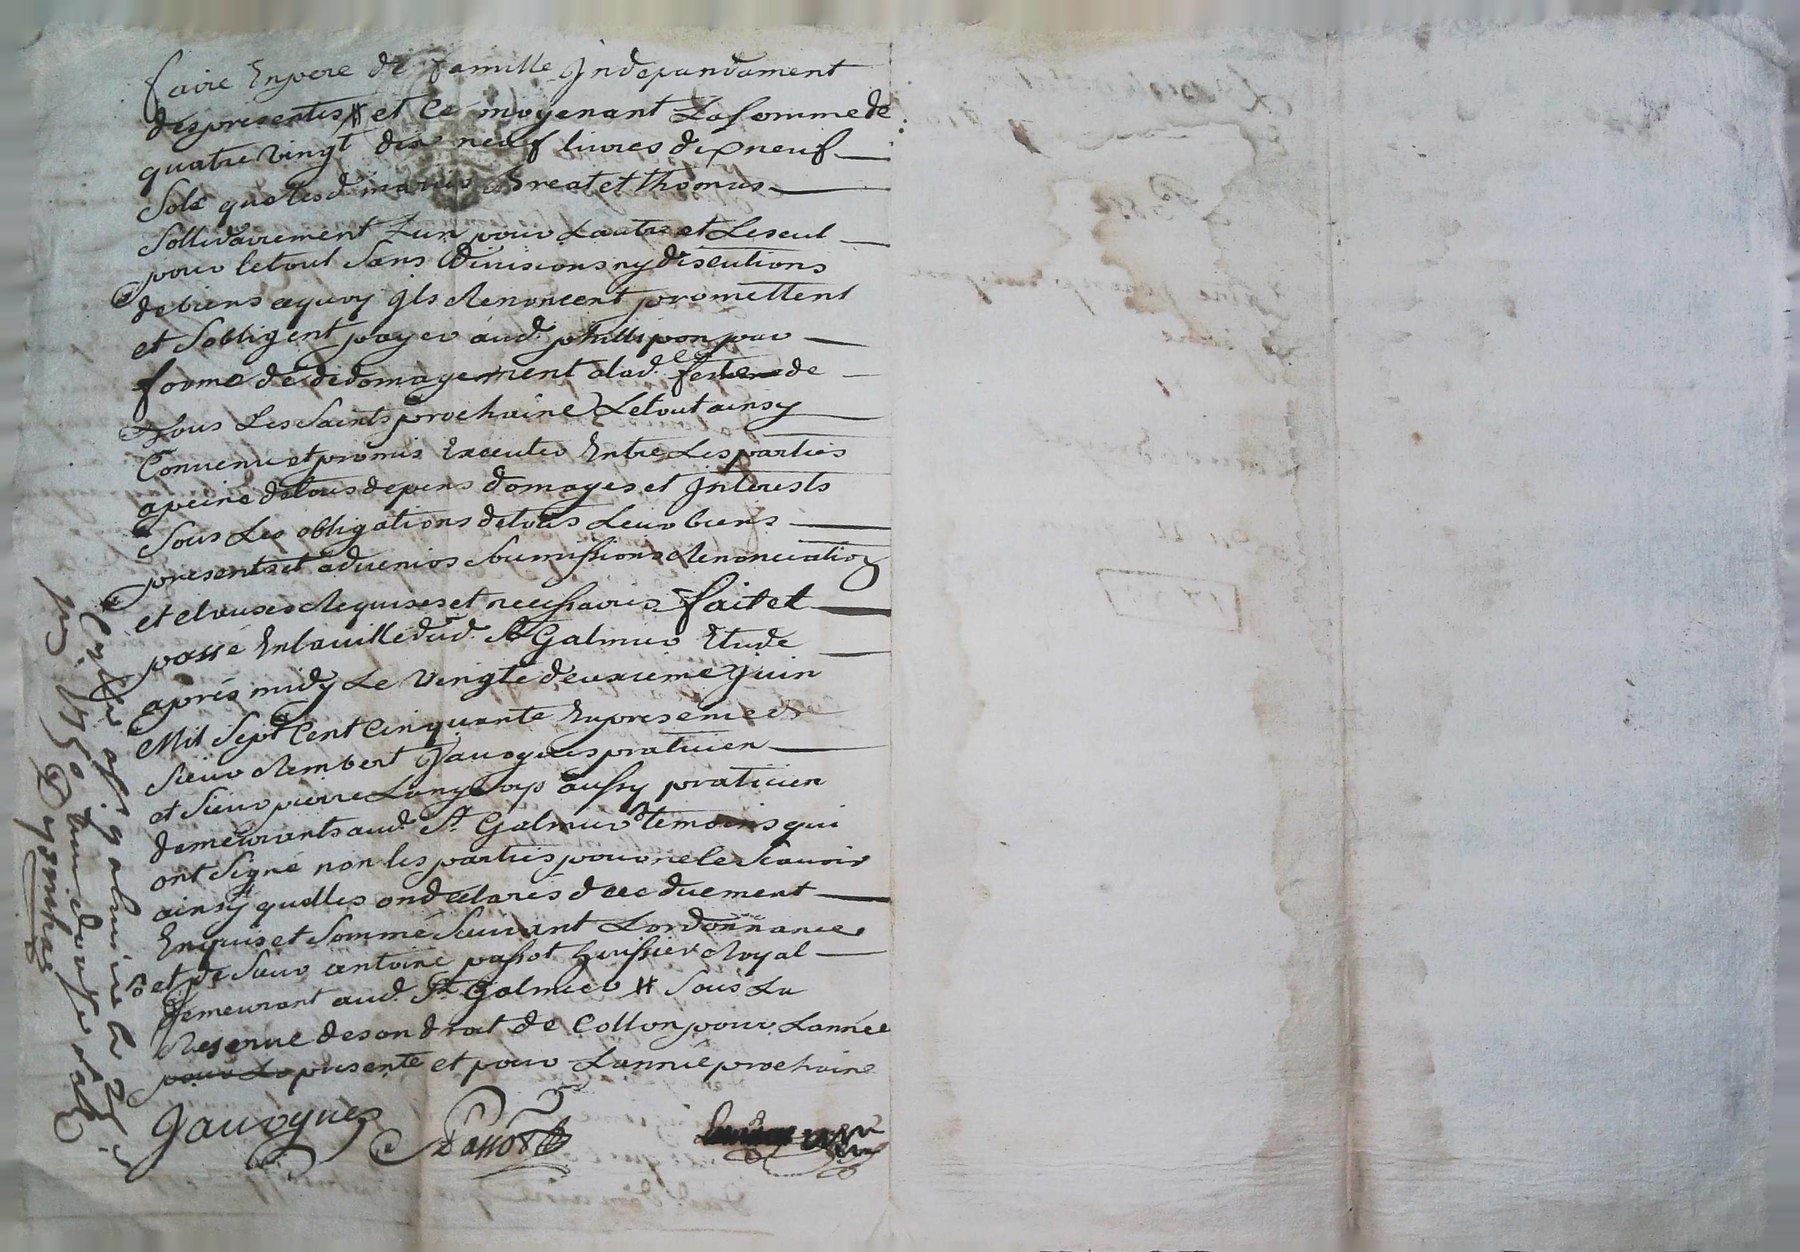 faire En pere de famille Jndepandament
des presentes # et ce moyenant La somme de
quatre vingt dix neuf livres dix neuf
Sols que lesd. maries Great et thomas
Sollidairement Lun pour Lautre et Le seul
pour le tout Sans divisions ny discutions
de biens a quoy Jls Renoncent promettent
et Sobligent payer aud. phillipon pour
forme de dedomagement a lad. feste de
Tous Les Saints prochaine Le tout ainsy
Convenu et promis Executer Entre Les parties
a peine de tous depens domages et Jnterests
Sous Les obligations de tous Leur biens
presents et advenirs Soumissions Renonciation
et clauses Requises et necessaires fait et
passé En la ville dud. St Galmier Etude
aprés midy Le vingt deuxieme Juin
Mil Sept Cent Cinquante En presence de
Sieur Rembert Javogues praticien
et Sieur pierre aussy praticien
demeurants aud. St. Galmier temoins qui
ont Signé non les parties pour ne le Scavoir
ainsy quelles ont declarés de ce duement
Enquis et Sommé Suivant Lordonnance
et de Sieur antoine passot huissier Royal
demeurant aud. St. Galmier # Sous La
Reserve de son droit de Collon pour Lannée
pour La presente et pour Lannée prochaine
Javogues Passot
Collé a St galmier le 25
1750 Reçu douze sols